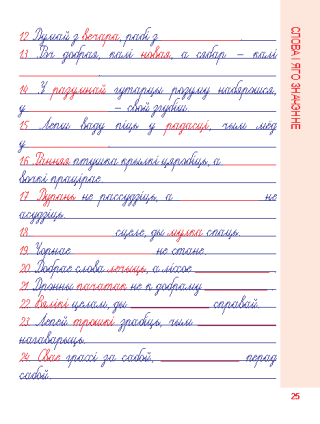 12. Думай з вечара, рабі з ____________.
13. Рэч добрая, калі новая, а сябар – калі
____________.
14. У разумнай гутарцы розуму набярэшся,
у ____________ – свой згубіш.
15. Лепш ваду піць у радасці, чым мёд
у ____________
16. Ранняя птушка крылкі цярэбіць, а ____________
вочкі працірае.
17. Дурань не рассудзіць, а ____________ не
асудзіць.
18. ____________ сцеле, ды мулка спаць.
19. Чорнае ____________ не стане.
20. Добрае слова лечыць, а ліхое ____________
21. Дрэнны пачатак не к добраму ____________
22. Вялікі целам, ды ____________ справай.
23. Лепей трошкі зрабіць, чым ____________
нагаварыць.
24. Свае грахі за сабой, ____________ перад
сабой.
СЛОВА І ЯГО ЗНАЧЭННЕ
25